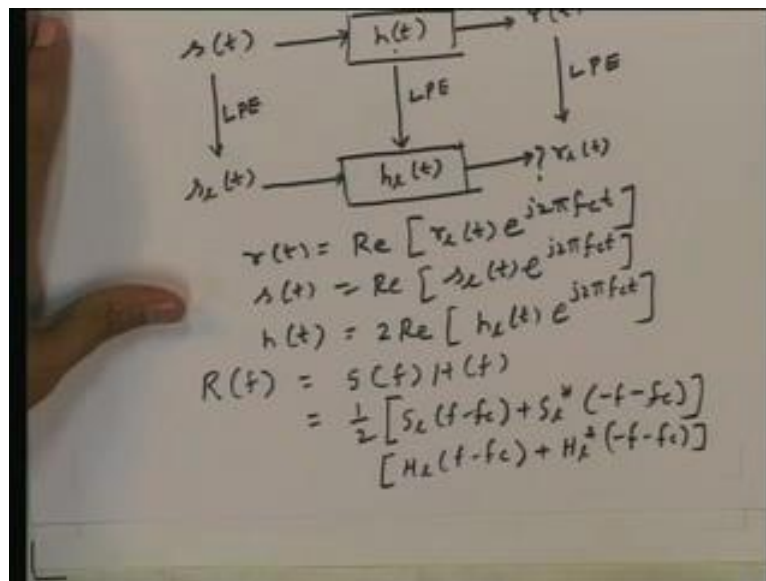 s(t) → h(t) → r(t)
LPE LPE LPE
s_l(t) → h_l(t) → ? r_l(t)
r(t) = Re [r_l(t) e^{j2πf_ct}]
s(t) = Re [s_l(t) e^{j2πf_ct}]
h(t) = 2 Re [h_l(t) e^{j2πf_ct}]
R(f) = S(f) H(f)
= 1/2 [S_l(f-f_c) + S_l^*(-f-f_c)]
[H_l(f-f_c) + H_l^*(-f-f_c)]